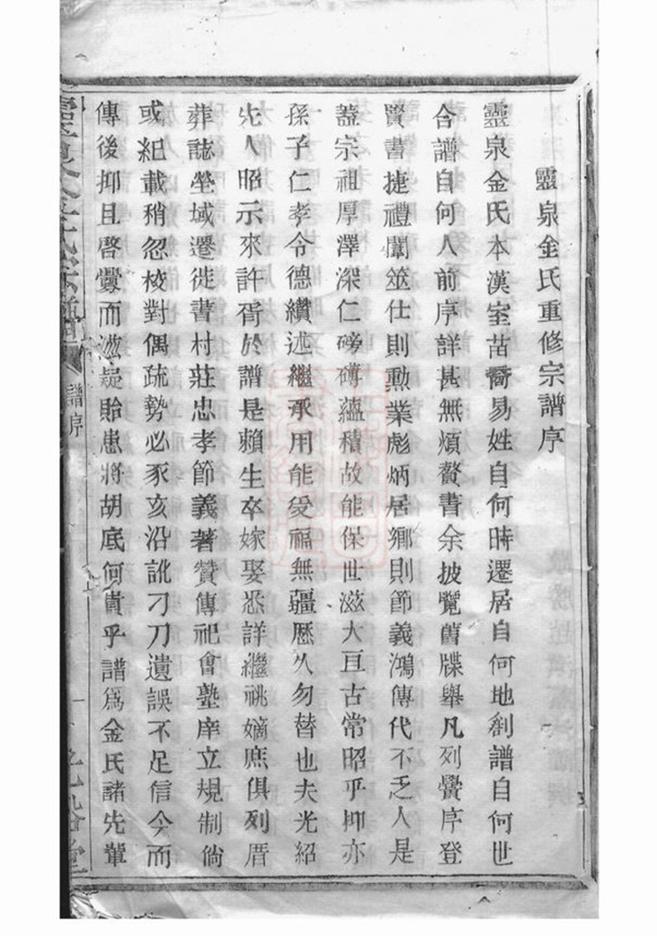 靈泉金氏重修宗譜序
靈泉金氏本漢室苗裔易姓自何時遷居自何地創譜自何世
合譜自何人前序詳甚無煩贅書余披覽舊牒舉凡列黌序登
賢書捷禮闈筮仕則勲業彪炳居鄉則節義鴻傳代不乏人是
蓋宗祖厚澤深仁磅礴蘊積故能保世滋大亘古常昭乎抑亦
孫子仁孝令德纘述繼承用能受福無疆歷久勿替也夫光紹
先人昭示來許胥於譜是賴生卒嫁娶悉詳繼祧嫡庶俱列厝
葬誌塋域遷徙書村莊忠孝節義著贊傳祀會塾庠立規制倘
或紀載稍忽校對偶疏勢必豕亥沿訛刁刀遺誤不足信今而
傳後抑且啓釁而滋疑貽患將胡底何貴乎譜爲金氏諸先輩
譜序
一